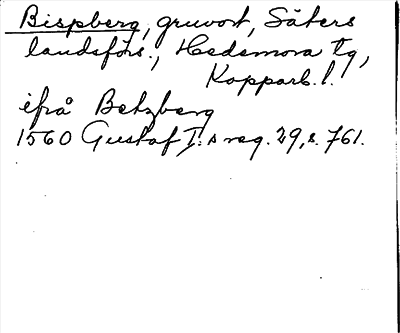 Bispberg, gruvort, Säters
landsförs., Hedemora tg,
Kopparb. l.
ifrå Betzberg
1560 Gustaf I:s reg. 29, s. 761.